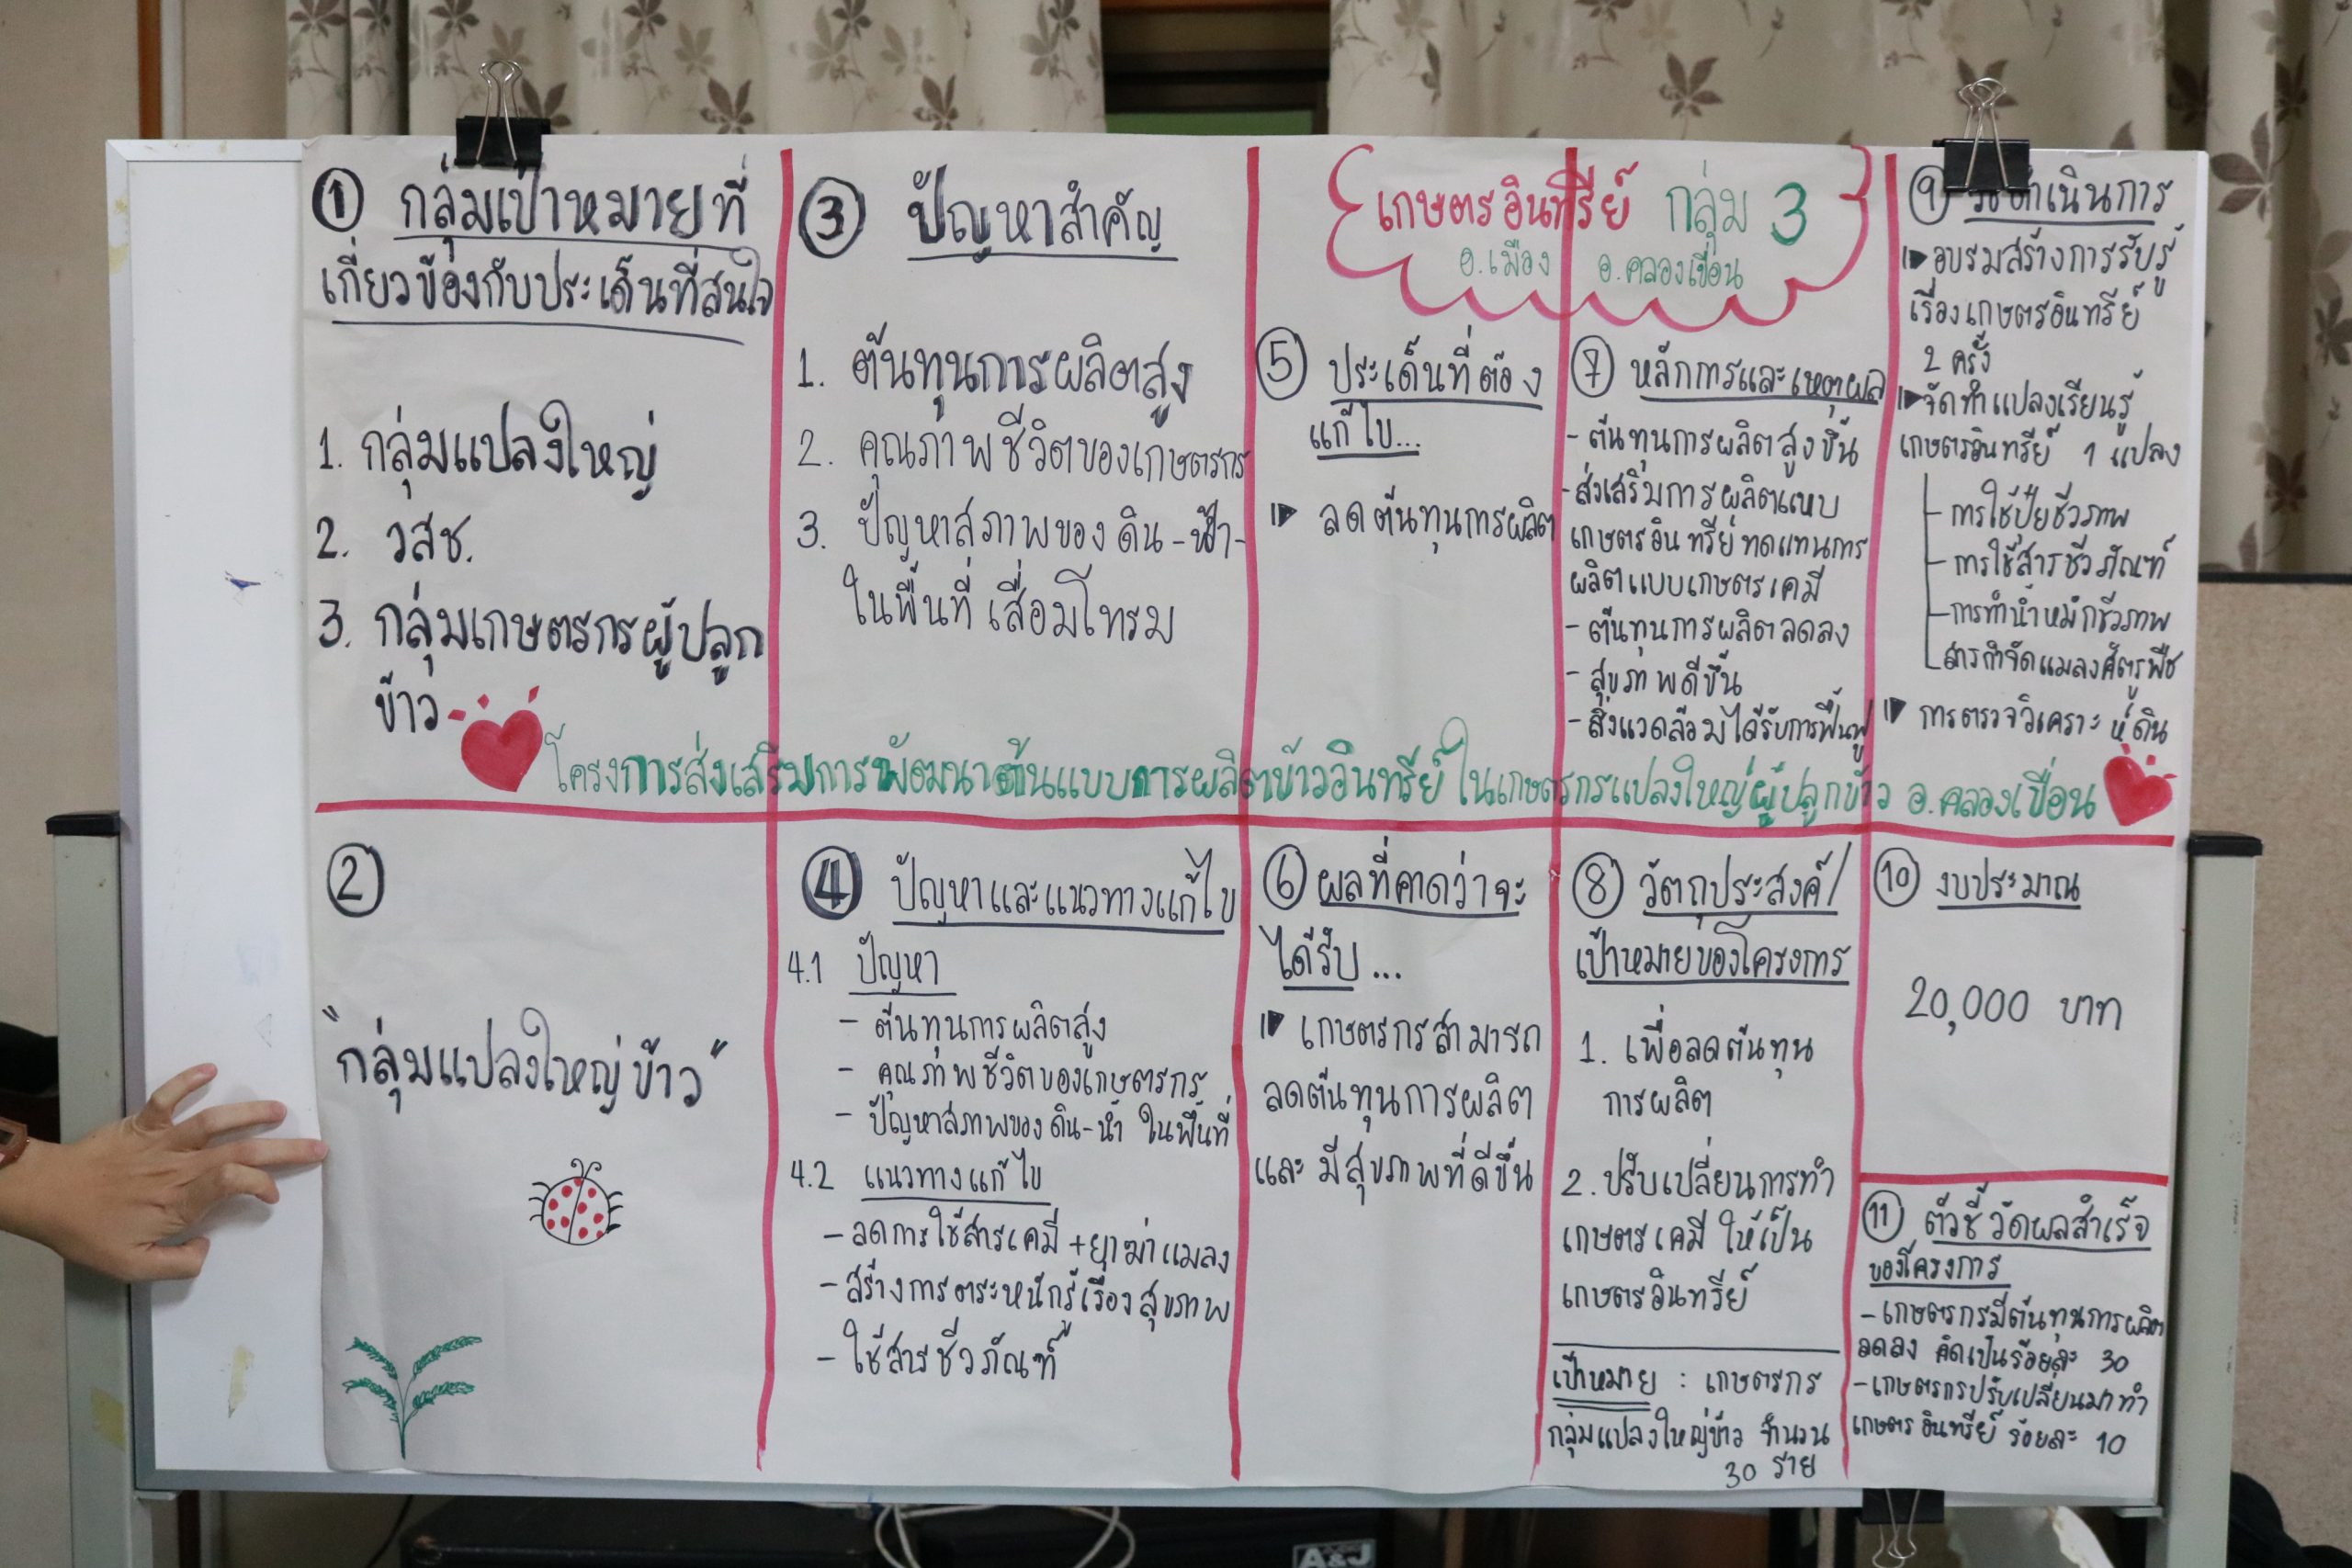 ① กลุ่มเป้าหมายที่
เกี่ยวข้องกับประเด็นที่สนใจ
1. กลุ่มแปลงใหญ่
2. วสช.
3. กลุ่มเกษตรกรผู้ปลูก
ข้าว
②
"กลุ่มแปลงใหญ่ข้าว"
③ ปัญหาสำคัญ
1. ต้นทุนการผลิตสูง
2. คุณภาพชีวิตของเกษตรกร
3. ปัญหาสภาพของ ดิน-น้ำ-
ในพื้นที่ เสื่อมโทรม
④ ปัญหาและแนวทางแก้ไข
4.1 ปัญหา
- ต้นทุนการผลิตสูง
- คุณภาพชีวิตของเกษตรกร
- ปัญหาสภาพของ ดิน-น้ำ ในพื้นที่
4.2 แนวทางแก้ไข
- ลดการใช้สารเคมี +ยาฆ่าแมลง
- สร้างการตระหนักรู้เรื่องสุขภาพ
- ใช้สารชีวภัณฑ์
เกษตรอินทรีย์ กลุ่ม 3
อ.เมือง อ.คลองเขื่อน
⑤ ประเด็นที่ต้อง
แก้ไข...
ลดต้นทุนการผลิต
⑥ ผลที่คาดว่าจะ
ได้รับ ...
เกษตรกรสามารถ
ลดต้นทุนการผลิต
และ มีสุขภาพที่ดีขึ้น
⑦ หลักการและเหตุผล
- ต้นทุนการผลิตสูงขึ้น
- ส่งเสริมการผลิตแบบ
เกษตรอินทรีย์ทดแทนการ
ผลิตแบบเกษตรเคมี
- ต้นทุนการผลิตลดลง
- สุขภาพดีขึ้น
- สิ่งแวดล้อมได้รับการฟื้นฟู
⑧ วัตถุประสงค์/
เป้าหมายของโครงการ
1. เพื่อลดต้นทุน
การผลิต
2. ปรับเปลี่ยนการทำ
เกษตรเคมี ให้เป็น
เกษตรอินทรีย์
เป้าหมาย : เกษตรกร
กลุ่มแปลงใหญ่ข้าว จำนวน
30 ราย
⑨ วิธีดำเนินการ
อบรมสร้างการรับรู้
เรื่องเกษตรอินทรีย์
2 ครั้ง
จัดทำแปลงเรียนรู้
เกษตรอินทรีย์ 1 แปลง
การใช้ปุ๋ยชีวภาพ
การใช้สารชีวภัณฑ์
การทำน้ำหมักชีวภาพ
สารกำจัดแมลงศัตรูพืช
การตรวจวิเคราะห์ดิน
โครงการส่งเสริมการพัฒนาต้นแบบการผลิตข้าวอินทรีย์ ในเกษตรกรแปลงใหญ่ผู้ปลูกข้าว อ.คลองเขื่อน
⑩ งบประมาณ
20,000 บาท
⑪ ตัวชี้วัดผลสำเร็จ
ของโครงการ
- เกษตรกรมีต้นทุนการผลิต
ลดลง คิดเป็นร้อยละ 30
- เกษตรกรปรับเปลี่ยนมาทำ
เกษตรอินทรีย์ ร้อยละ 10
A&J